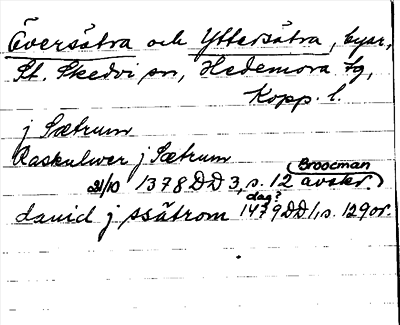 Översätra och Yttersätra, byar,
St. Skedvi sn, Hedemora tg,
Kopp. l.
j Sætrum
Raskulwer j Sætrum
31/10 1378 DD 3, s. 12 (Broocman avskr.)
dauid j ssätrom 1479 dag? DD 1, s. 129 or.